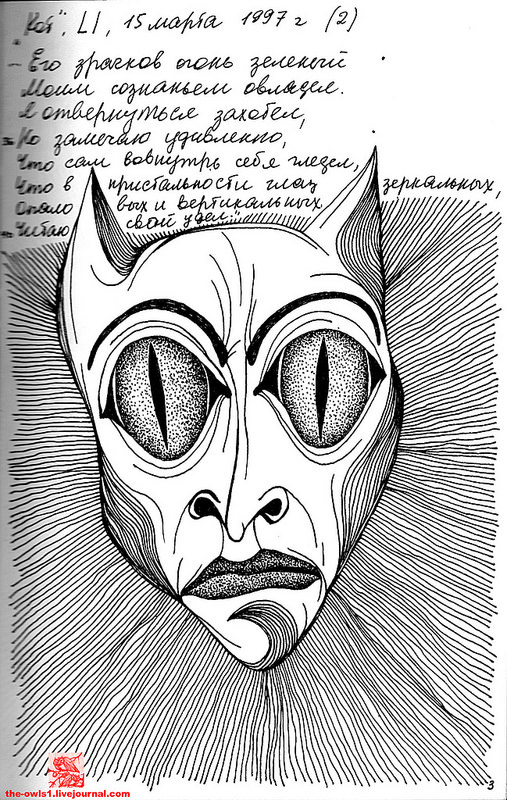 "Кот", LI, 15 марта 1997 г (2)
– Его зрачков огонь зеленый
Моим сознаньем овладел.
Я отвернуться захотел,
Но замечаю удивленно,
Что сам вовнутрь себя глядел,
Что в пристальности глаз зеркальных,
Опаловых и вертикальных
Читаю свой удел...
3
the-owls1.livejournal.com